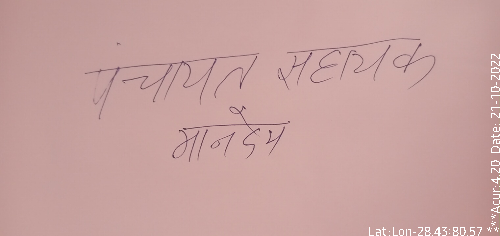 पंचायत सहायक
मानदेय
Lat:Lon-28.43:80.57
***Acur:4.20 Date: 21-10-2022